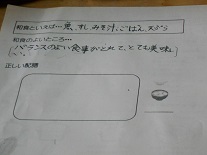 和食といえば…魚、すし、みそ汁、ごはん、天ぷら
和食のよいところ…
バランスのよい食事がとれて、とても美味
しい。
正しい配膳